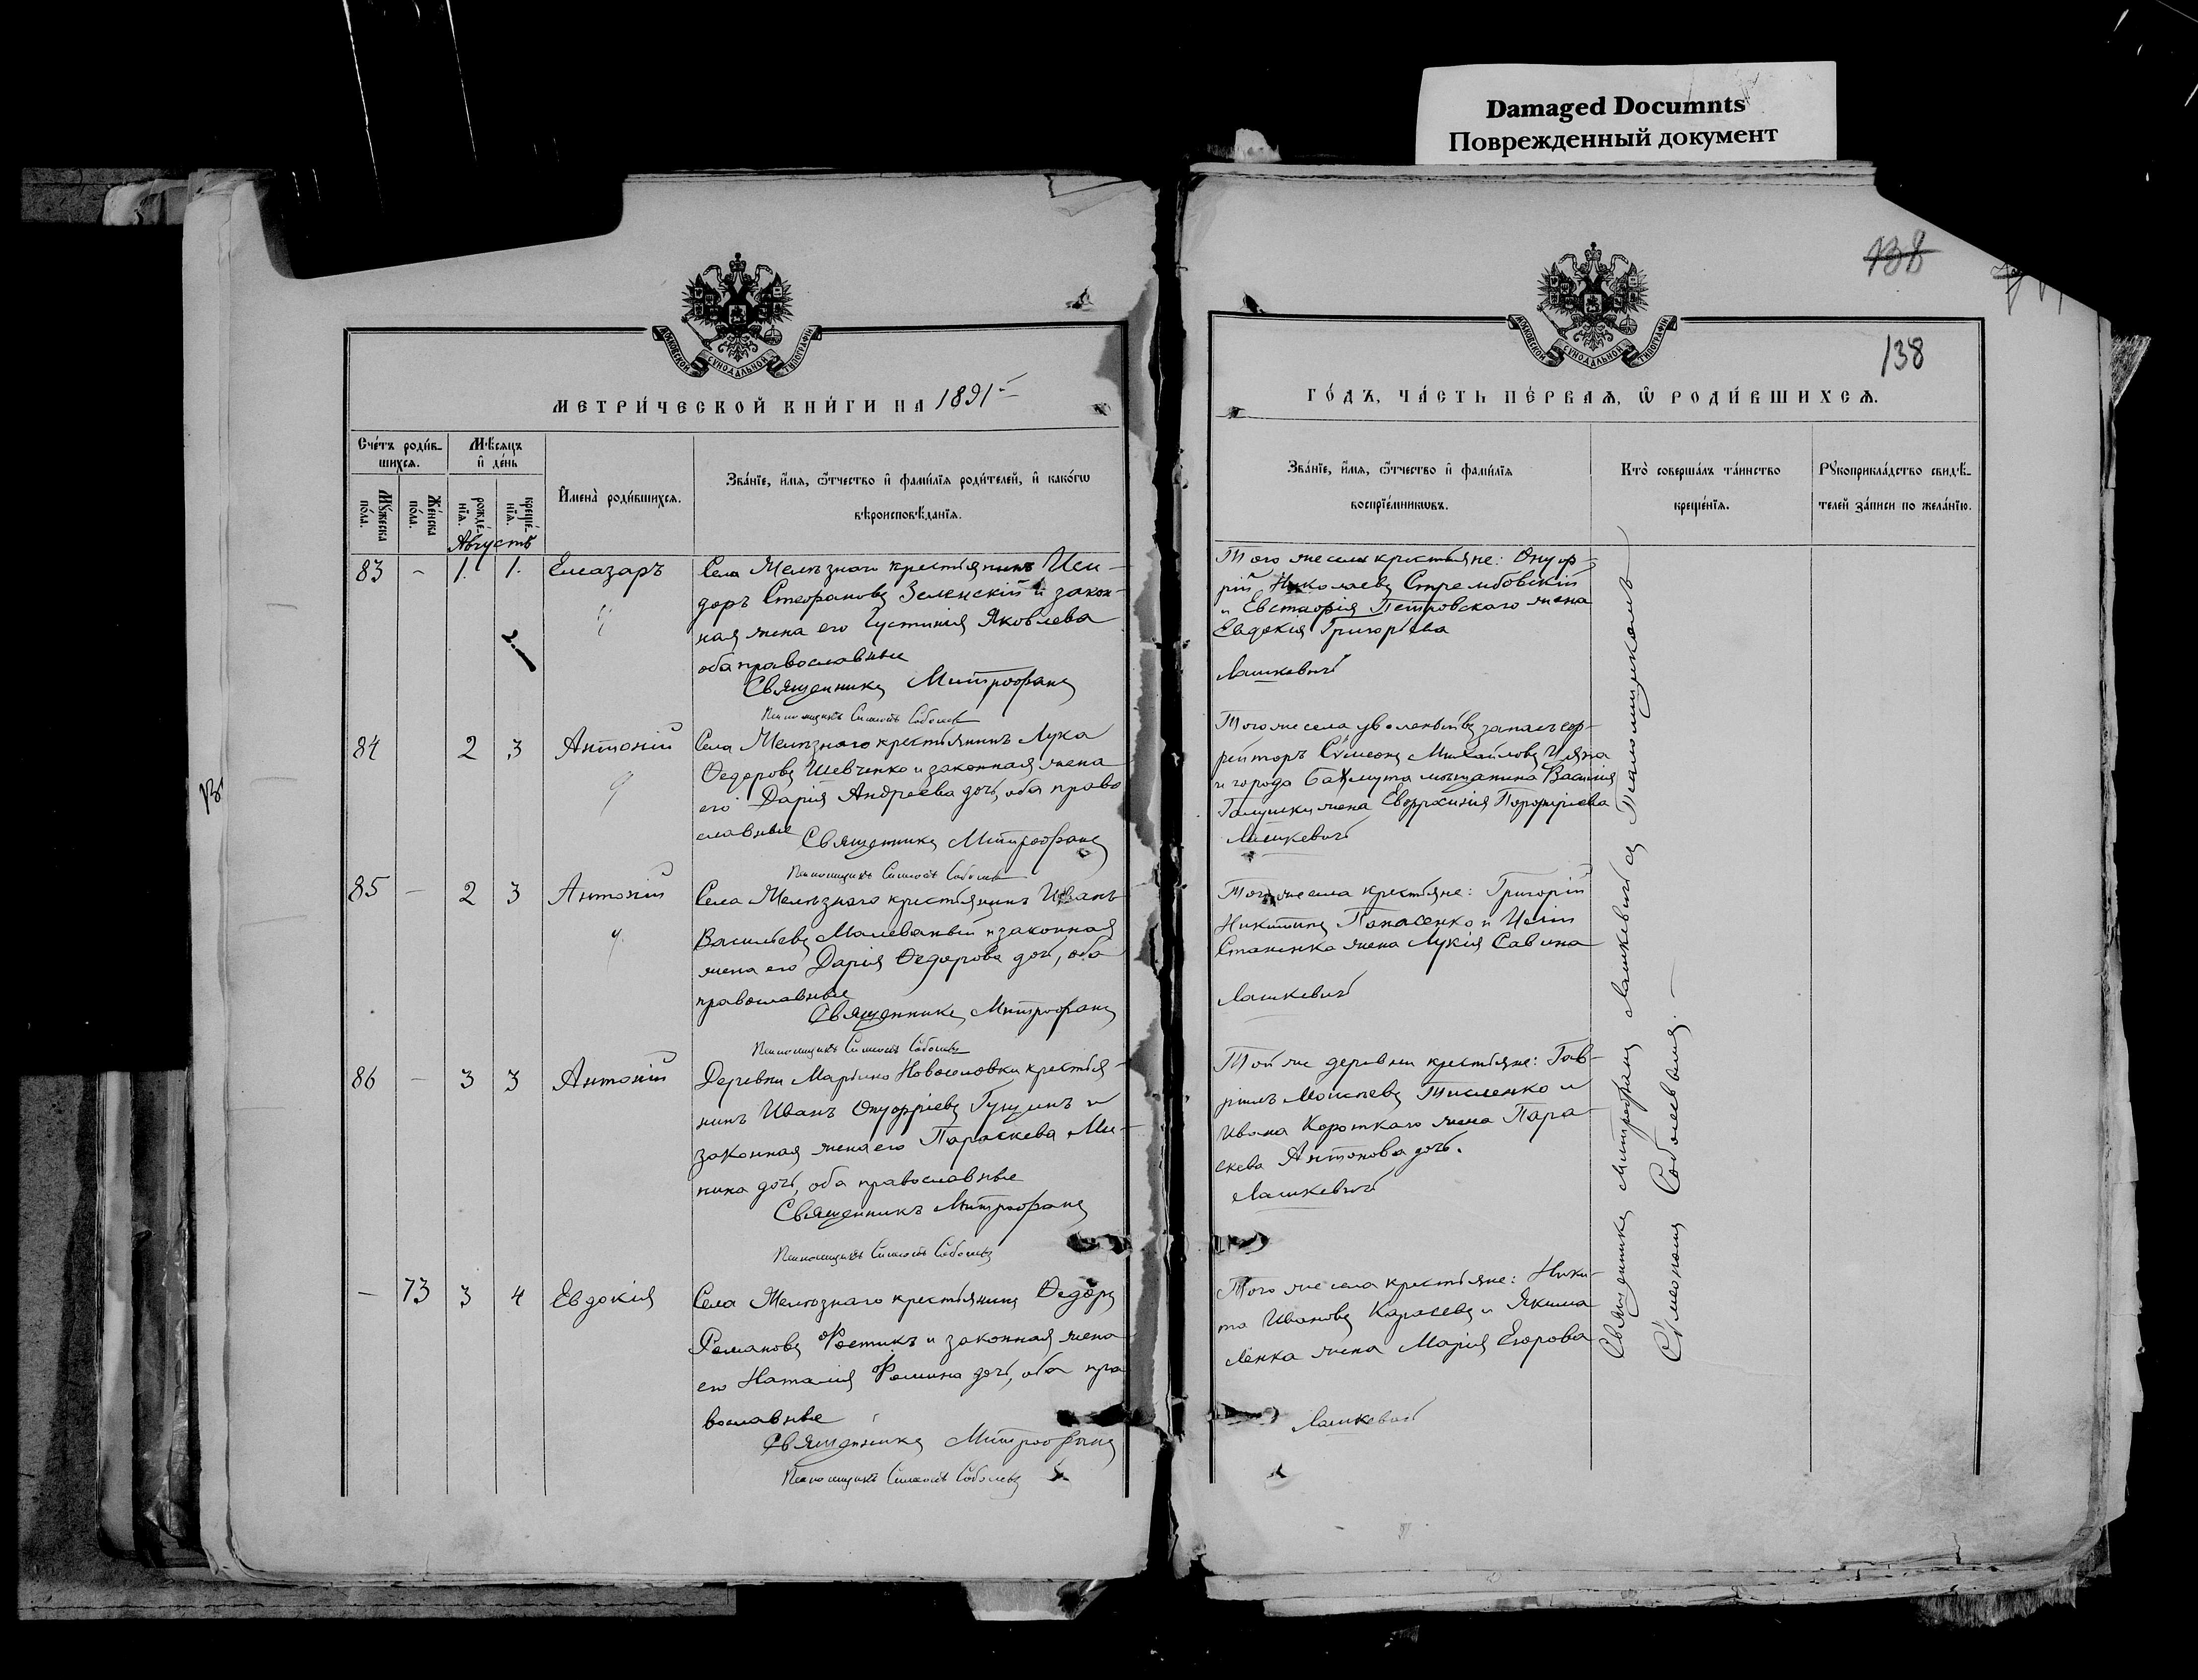 Damaged Documnts
Поврежденный документ
138
138
МОСКОВСКОЙ СУНОДАЛЬНОЙ ТИПОГРАФІИ
МОСКОВСКОЙ СУНОДАЛЬНОЙ ТИПОГРАФІИ
МЕТРИ́ЧЕСКОЙ КНИ́ГИ НА 1891
ГО́ДЪ, ЧА́СТЬ ПЕ́РВАѦ, Ѡ҆ РОДИ́ВШИХСѦ.
Сче́тъ роди́в-
шихсѧ.
Мꙋ́жеска по́ла.
Же́нска по́ла.
Мѣ́сѧцъ и҆ де́нь
рожде́-
нїѧ.
креще́-
нїѧ.
Августъ
И҆мена̀ роди́вшихсѧ.
Зва́нїе, и҆́мѧ, ѻ҆́тчество и҆ фами́лїѧ роди́телей, и҆ како́гѡ
вѣроисповѣ́данїѧ.
Зва́нїе, и҆́мѧ, ѻ҆́тчество и҆ фами́лїѧ
воспрїе́мникѡвъ.
Кто̀ соверша́лъ та́инство
креще́нїѧ.
Рꙋкоприкла́дство свидѣ́-
телей за́писи по жела́нїю.
83 - 1. 1. Елеазаръ
Села Желѣзнаго крестьянинъ Иси-
доръ Стефановъ Зеленскій и закон-
ная жена его Іустинія Яковлева
оба православные
Священникъ Митрофанъ
Псаломщикъ Симеонъ Соболевъ
Того же села крестьяне: Онуф-
рій Николаевъ Стрембовскій
и Евстафія Петровскаго жена
Евдокія Григорьева
Лашкевичъ
84 2 3 Антоній
Села Желѣзнаго крестьянинъ Лука
Ѳедоровъ Шевченко и законная жена
его Дарія Андреева дочь, оба право
славные Священникъ Митрофанъ
Псаломщикъ Симеонъ Соболевъ
Того же села уволеный въ запасъ еф-
рейторъ Сѵмеонъ Михайловъ
и города Бахмута мѣщанина Василія
жена Евфросинія Порфиріева
Лашкевичъ
85 - 2 3 Антоній
Села Желѣзнаго крестьянинъ Иванъ
Васильевъ Малеваный и законная
жена его Дарія Ѳедорова дочь, оба
православные
Священникъ Митрофанъ
Псаломщикъ Симеонъ Соболевъ
Того же села крестьяне: Григорій
Никитинъ Панасенко и
жена Лукія Савина
Лашкевичъ
86 - 3 3 Антоній
Деревни Марьино Новоселовки крестья-
нинъ Иванъ Онуфріевъ и
законная жена его Параскева Ми-
нина дочь, оба православные
Священникъ Митрофанъ
Псаломщикъ Симеонъ Соболевъ
Той же деревни крестьяне: Гав-
ріилъ Моисѣевъ Тисленко и
Ивана Короткаго жена Пара-
скева Антонова дочь.
Лашкевичъ
- 73 3 4 Евдокія
Села Желѣзнаго крестьянинъ Ѳедоръ
Романовъ и законная жена
его Наталія Фомина дочь, оба пра
вославные
Священникъ Митрофанъ
Псаломщикъ Симеонъ Соболевъ
Того же села крестьяне: Ники-
та Ивановъ Карасевъ и Якима
жена Марія Егорова
Лашкевичъ
Священникъ Митрофанъ Лашкевичъ съ Псаломщикомъ
Сѵмеономъ Соболевымъ.